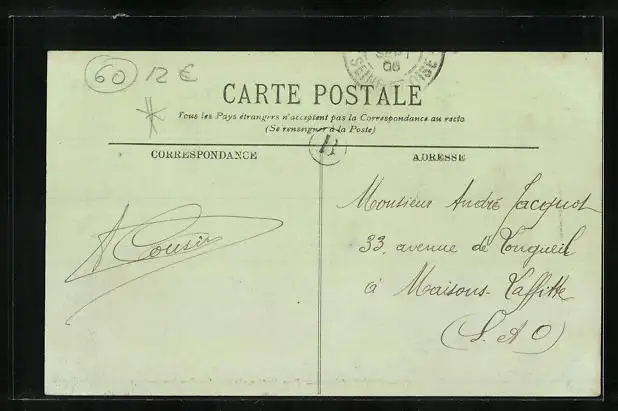 60 12 €
SEPT
06
SEINE
CARTE POSTALE
Tous les Pays étrangers n'acceptent pas la Correspondance au recto
(Se renseigner à la Poste)
CORRESPONDANCE
ADRESSE
A Cousin
Monsieur André Jacquot
33, avenue de Longueil
à Maisons-Laffitte
(S. et O)